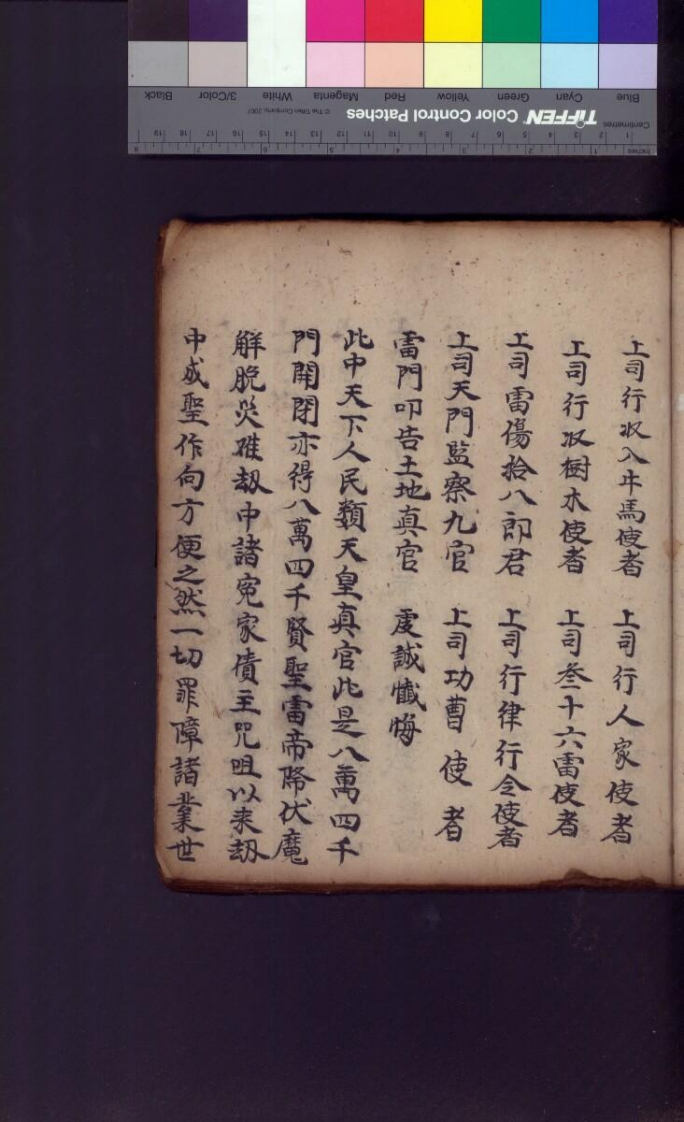 上司行收入牛馬使者　上司行人家使者
上司行收樹木使者　上司叁十六雷使者
上司雷傷拾八郎君　上司行律行令使者
上司天門監察九官　上司功曹使者
雷門叩告土地真官　虔誠懺悔
此中天下人民類天皇真官此是八萬四千
門開閉亦得八萬四千賢聖雷帝降伏魔
解脫災难劫中諸冤家債主咒咀以来劫
中成聖作向方便之然一切罪障諸業世
Blue Cyan Green Yellow Red Magenta White 3/Color Black
TIFFEN Color Control Patches
© The Tiffen Company, 2007
Centimetres 1 2 3 4 5 6 7 8 9 10 11 12 13 14 15 16 17 18 19
Inches 1 2 3 4 5 6 7 8